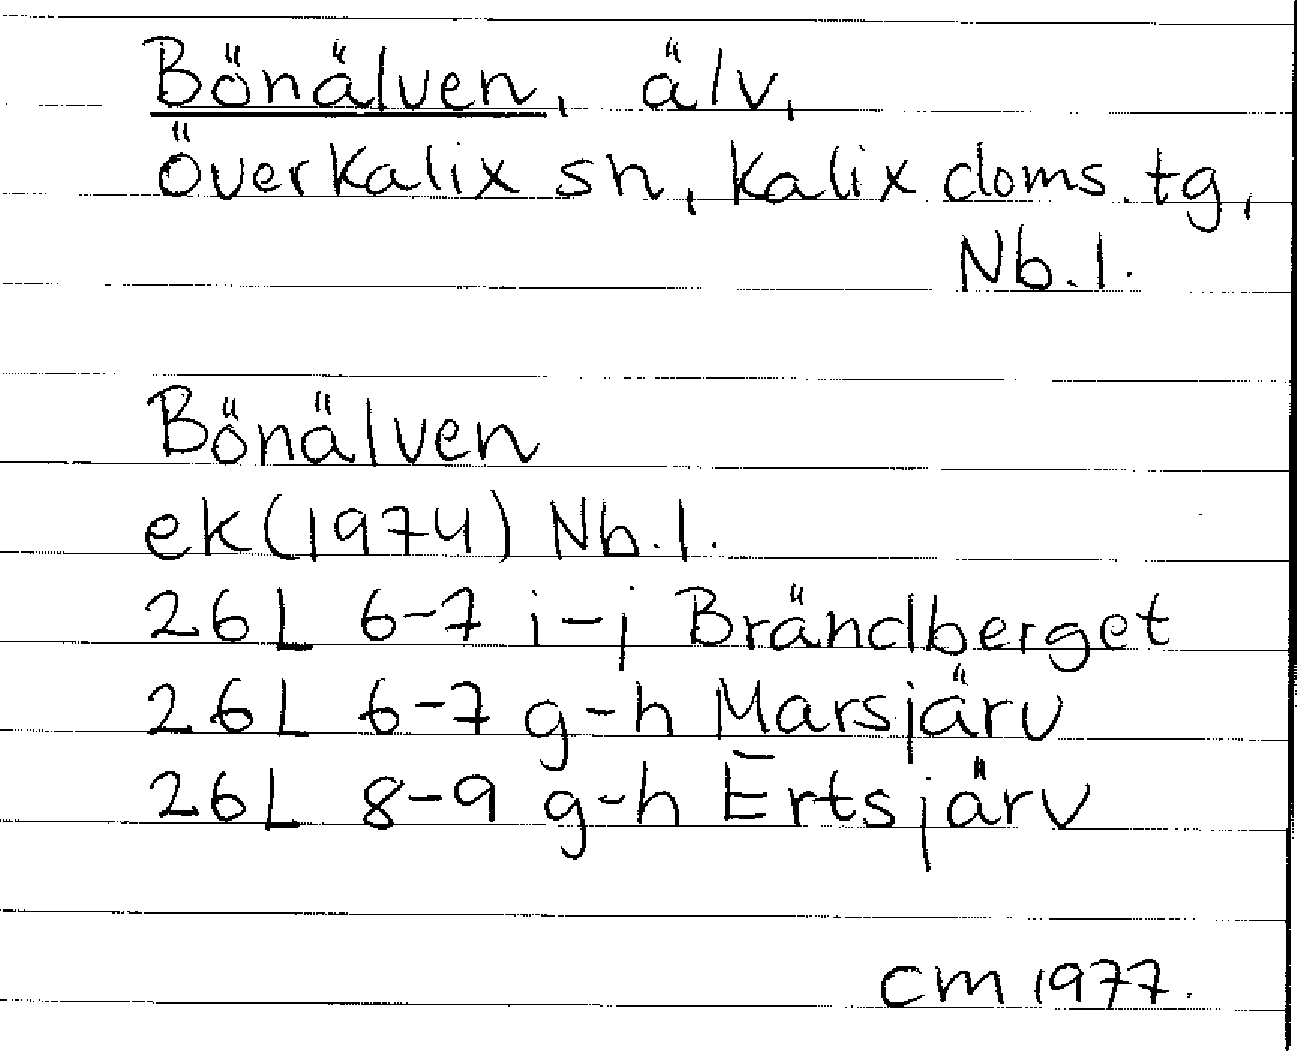 Bönälven, älv,
Överkalix sn, Kalix doms.tg,
Nb.l.
Bönälven
ek (1974) Nb.l.
26L 6-7 i-j Brändberget
26L 6-7 g-h Marsjärv
26L 8-9 g-h Ertsjärv
CM 1977.